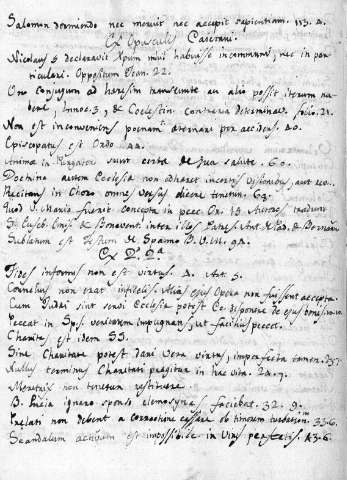 Salomon dormiendo nec meruit nec accepit sapientiam. 113. A.
Ex Opusculis Caietani.
Nicolaus 3 declaravit Xpum nihil habuisse in communi, nec in par-
ticulari. Oppositum Joan. 22.
Uno conjugum ad heresim transeunte an alio possit iterum nu-
bere, Innoc. 3, & Coelestin. contraria determinat. folio. 21.
Non est inconveniens poenam aeternari per accidens. 40.
Episcopatus est Ordo. 44.
Anima in Purgatorio sunt certa de sua salute. 60.
Doctrina autem Ecclesiae non adhaeret incertis visionibus, aut
Recitans in Choro omnes versus dicere tenetur. 63.
Quod V. Maria fuerit concepta in pecc. Or. 15 Auctores tradunt
inter illos
Sublatum est Festum de Spasmo B. V. M. 92.
Ex 2ª 2ª
Fides informis non est virtus. 4. Art. 5.
Cornelius non erat infidelis. Alias ejus Opera non fuissent accepta.
Cum Judaei sint servi Ecclesiae potest Ec. disponere de ejus bonis.
Peccat in Sps. veritatem impugnans, ut facilius peccet.
Charitas est idem SS.
Sine Charitate potest dari vera virtus, imperfecta tamen. 23.7.
Nullus terminus Charitati praefigitur in hac vita. 24. 7.
Meretrix non tenetur restituere.
B. Lucia ignaro sponso elemosynas faciebat. 32. 8.
Praelati non debent a correctione cessare ob timorem turbationis. 33.6.
Scandalum activum est impossibile in viris perfectis. 43.6.